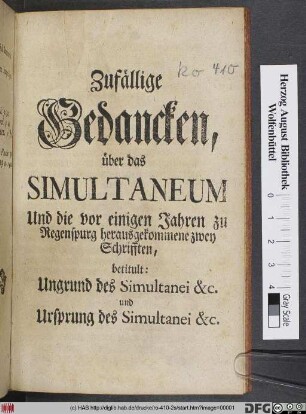 Ro 410
Zufällige
Gedancken,
über das
SIMULTANEUM
Und die vor einigen Jahren zu
Regenspurg herausgekommene zwey
Schrifften,
betitult:
Ungrund des Simultanei &c.
und
Ursprung des Simultanei &c.
Herzog August Bibliothek
Wolfenbüttel
Gray Scale
(c) HAB http://diglib.hab.de/drucke/ro-410-2s/start.htm?image=00001
DFG